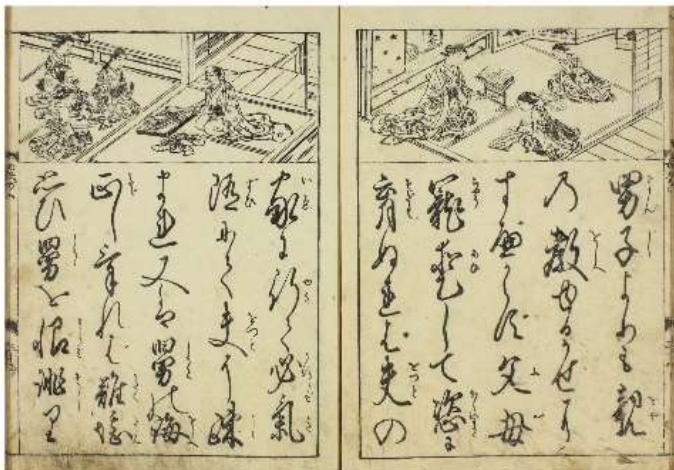 男子よりも親
乃教ゆるかせに
すべからず父母
寵愛して恣に
育ぬれば夫の
家に行て必氣
随にて夫に疎
まれ又は舅の誨
正しければ難堪
思ひ舅を恨誹り